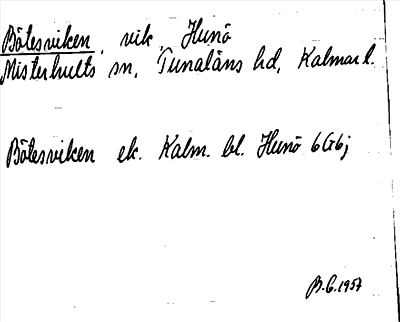 Båtesviken, vik, Hunö
Misterhults sn, Tunaläns hd, Kalmar l.
Båtesviken ek. Kalm. bl. Hunö 6G6j
B.G. 1957